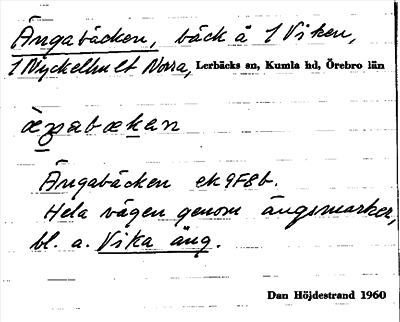 Ängabäcken, bäck å 1 Viken,
1 Nyckelhult Norra, Lerbäcks sn, Kumla hd, Örebro län
Ängabäcken ek 9F8b.
Hela vägen genom ängsmarker,
bl. a. Vika äng.
Dan Höjdestrand 1960